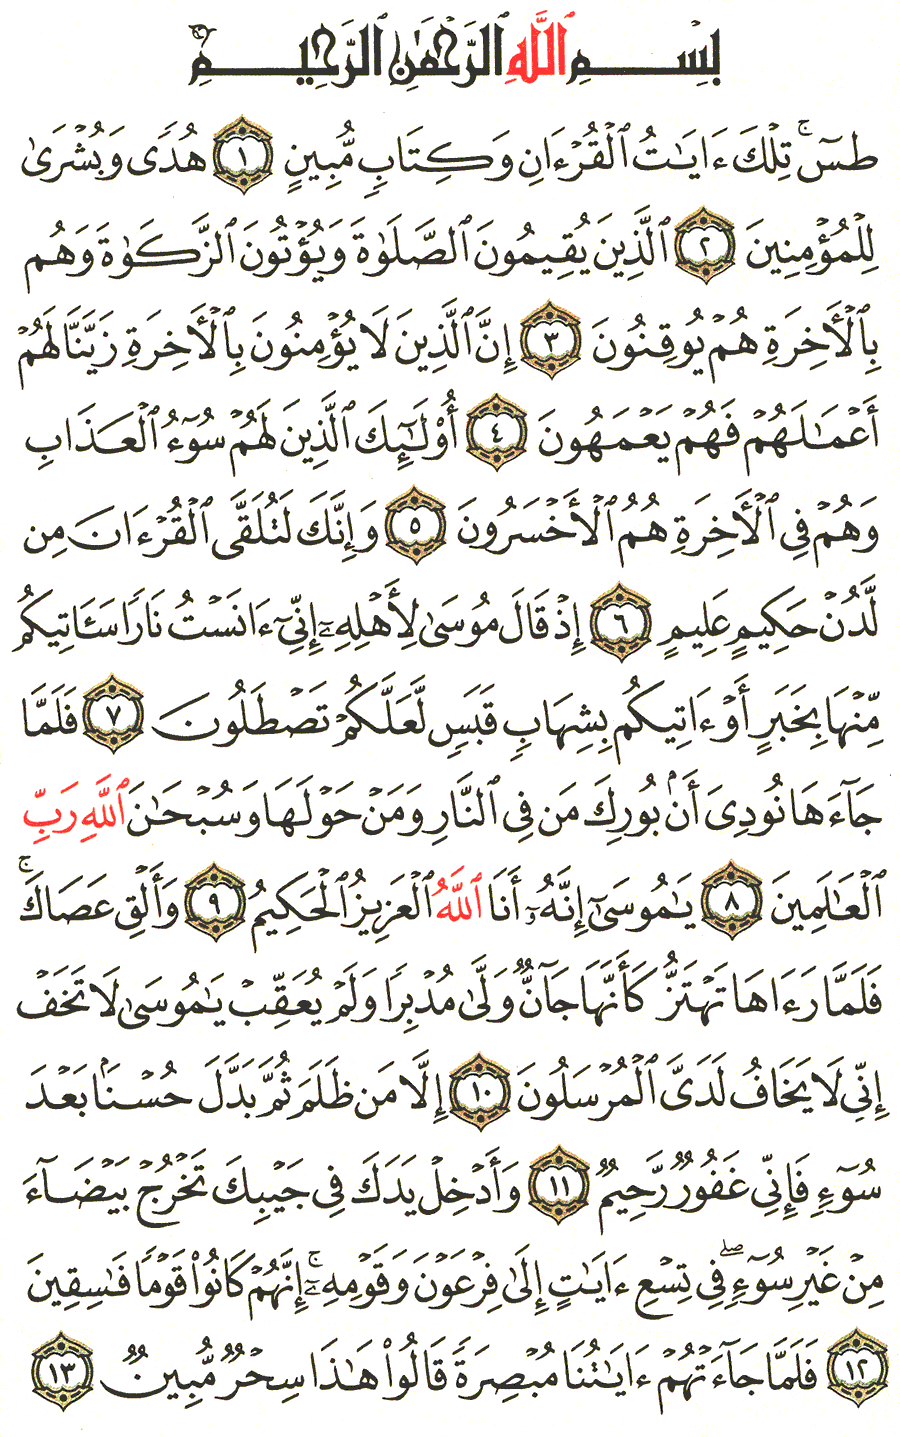 بِسْمِ ٱللَّهِ ٱلرَّحْمَٰنِ ٱلرَّحِيمِ
طسٓ ۚ تِلْكَ ءَايَٰتُ ٱلْقُرْءَانِ وَكِتَابٍ مُّبِينٍ ١ هُدًى وَبُشْرَىٰ
لِلْمُؤْمِنِينَ ٢ ٱلَّذِينَ يُقِيمُونَ ٱلصَّلَوٰةَ وَيُؤْتُونَ ٱلزَّكَوٰةَ وَهُم
بِٱلْأَخِرَةِ هُمْ يُوقِنُونَ ٣ إِنَّ ٱلَّذِينَ لَا يُؤْمِنُونَ بِٱلْأَخِرَةِ زَيَّنَّا لَهُمْ
أَعْمَٰلَهُمْ فَهُمْ يَعْمَهُونَ ٤ أُو۟لَٰٓئِكَ ٱلَّذِينَ لَهُمْ سُوٓءُ ٱلْعَذَابِ
وَهُمْ فِى ٱلْأَخِرَةِ هُمُ ٱلْأَخْسَرُونَ ٥ وَإِنَّكَ لَتُلَقَّى ٱلْقُرْءَانَ مِن
لَّدُنْ حَكِيمٍ عَلِيمٍ ٦ إِذْ قَالَ مُوسَىٰ لِأَهْلِهِۦٓ إِنِّىٓ ءَانَسْتُ نَارًا سَـَٔاتِيكُم
مِّنْهَا بِخَبَرٍ أَوْ ءَاتِيكُم بِشِهَابٍ قَبَسٍ لَّعَلَّكُمْ تَصْطَلُونَ ٧ فَلَمَّا
جَآءَهَا نُودِىَ أَنۢ بُورِكَ مَن فِى ٱلنَّارِ وَمَنْ حَوْلَهَا وَسُبْحَٰنَ ٱللَّهِ رَبِّ
ٱلْعَٰلَمِينَ ٨ يَٰمُوسَىٰٓ إِنَّهُۥٓ أَنَا ٱللَّهُ ٱلْعَزِيزُ ٱلْحَكِيمُ ٩ وَأَلْقِ عَصَاكَ ۚ
فَلَمَّا رَءَاهَا تَهْتَزُّ كَأَنَّهَا جَآنٌّ وَلَّىٰ مُدْبِرًا وَلَمْ يُعَقِّبْ يَٰمُوسَىٰ لَا تَخَفْ
إِنِّى لَا يَخَافُ لَدَىَّ ٱلْمُرْسَلُونَ ١٠ إِلَّا مَن ظَلَمَ ثُمَّ بَدَّلَ حُسْنًۢا بَعْدَ
سُوٓءٍ فَإِنِّى غَفُورٌ رَّحِيمٌ ١١ وَأَدْخِلْ يَدَكَ فِى جَيْبِكَ تَخْرُجْ بَيْضَآءَ
مِنْ غَيْرِ سُوٓءٍ ۖ فِى تِسْعِ ءَايَٰتٍ إِلَىٰ فِرْعَوْنَ وَقَوْمِهِۦٓ ۚ إِنَّهُمْ كَانُوا۟ قَوْمًا فَٰسِقِينَ
١٢ فَلَمَّا جَآءَتْهُمْ ءَايَٰتُنَا مُبْصِرَةً قَالُوا۟ هَٰذَا سِحْرٌ مُّبِينٌ ١٣